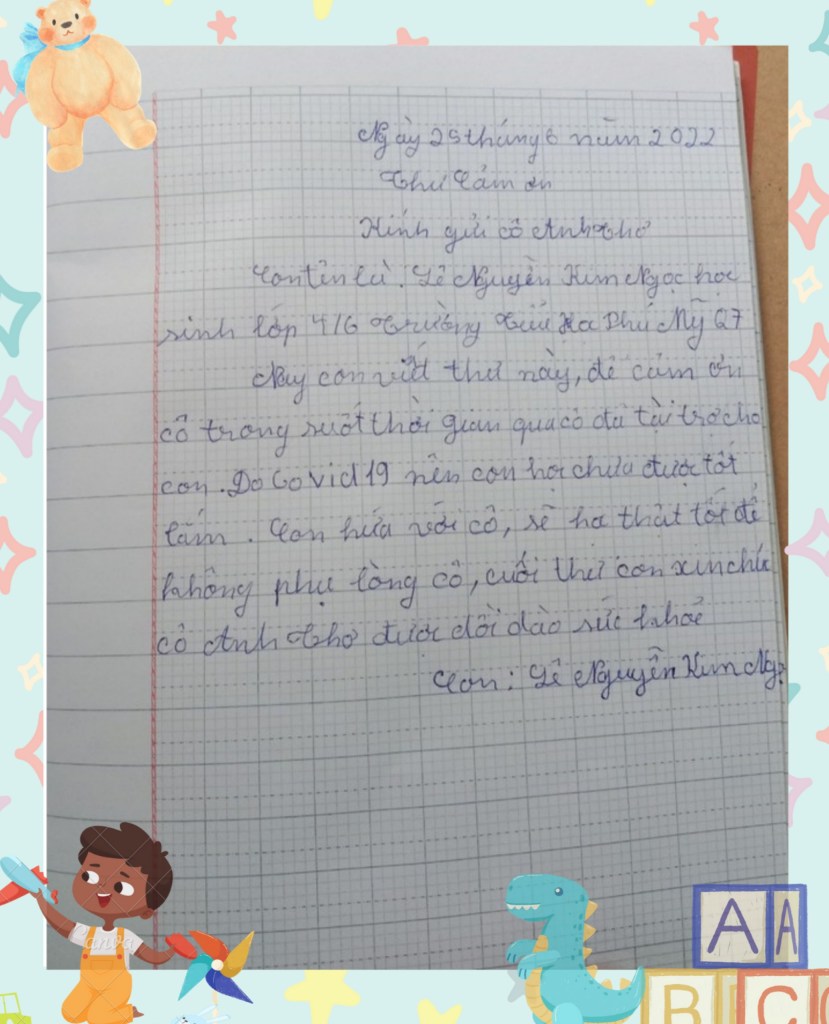 Ngày 25 tháng 6 năm 2022
Thư cảm ơn
Kính gửi cô Anh Thơ
Con tên là: Lê Nguyễn Kim Ngọc học
sinh lớp 4/6 trường Phú Mỹ Q7
Nay con viết thư này, để cảm ơn
cô trong suốt thời gian qua cô đã tài trợ cho
con. Do Covid 19 nên con học chưa được tốt
lắm. Con hứa với cô, sẽ học thật tốt để
không phụ lòng cô, cuối thư con xin chúc
cô Anh Thơ được dồi dào sức khoẻ
Con: Lê Nguyễn Kim Ngọc
Canva
A A
B C